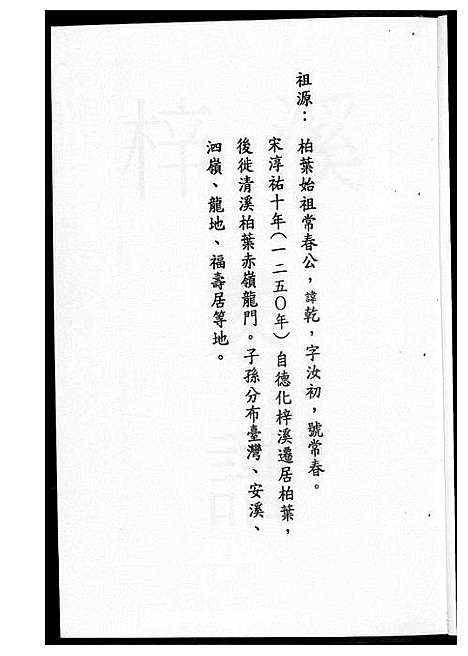 祖源：柏葉始祖常春公，諱乾，字汝初，號常春。
宋淳祐十年（一二五〇年）自德化梓溪遷居柏葉，
後徙清溪柏葉赤嶺龍門。子孫分布臺灣、安溪、
泗嶺、龍地、福壽居等地。